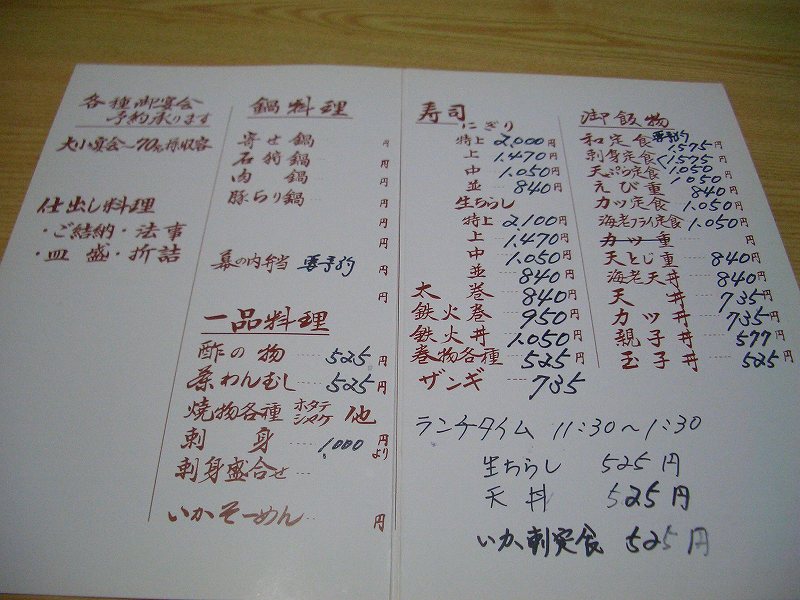 各種御宴会
予約承ります
大小宴会〜70名様収容
仕出し料理
・ご結納・法事
・皿盛・折詰
鍋料理
寄せ鍋 円
石狩鍋 円
肉鍋 円
豚ちり鍋 円
円
円
幕の内弁当 要予約 円
円
一品料理
酢の物 525円
茶わんむし 525円
焼物各種 ホタテ シャケ 他
刺身 1,000円より
刺身盛合せ
いかそーめん 円
寿司
にぎり
特上 2,000円
上 1,470円
中 1,050円
並 840円
生ちらし
特上 2,100円
上 1,470円
中 1,050円
並 840円
太巻 840円
鉄火巻 950円
鉄火丼 1,050円
巻物各種 525円
ザンギ 735
御飯物
和定食 要予約 1,575円
刺身定食 1,575円
天ぷら定食 1,050円
えび重 840円
カツ定食 1,050円
海老フライ定食 1,050円
カツ重 円
天とじ重 840円
海老天丼 840円
天丼 735円
カツ丼 735円
親子丼 577円
玉子丼 525円
ランチタイム 11:30〜1:30
生ちらし 525円
天丼 525円
いか刺定食 525円